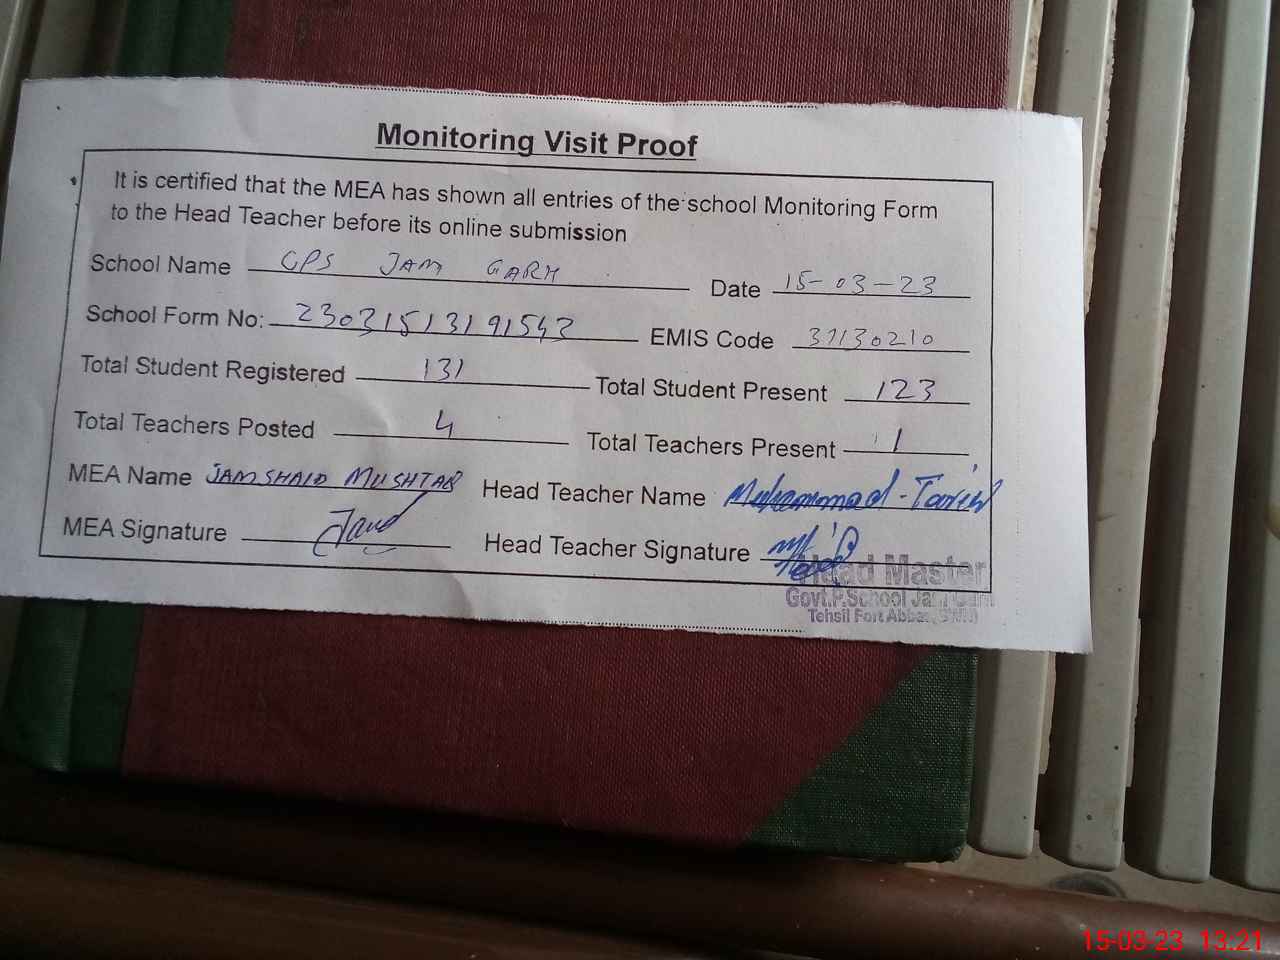 Monitoring Visit Proof
It is certified that the MEA has shown all entries of the school Monitoring Form
to the Head Teacher before its online submission
School Name GPS JAM GARH
Date 15-03-23
School Form No: 23031513191543
EMIS Code 31130210
Total Student Registered 131
Total Student Present 123
Total Teachers Posted 4
Total Teachers Present 1
MEA Name JAMSHAID MUSHTAQ
Head Teacher Name Muhammad - Tariq
MEA Signature
Head Teacher Signature
Head Master
Govt.P.School Jam Garh
Tehsil Fort Abbas,
15-03-23 13:21